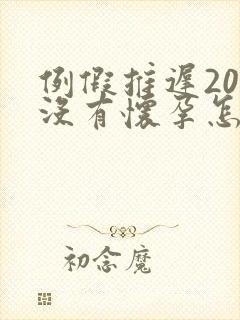 例假推遲20
沒有懷孕怎
初念魔